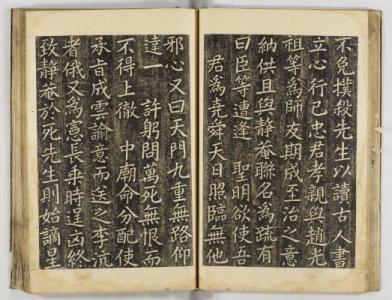 不免撲殺先生以讀古人書
立心行己忠君孝親與趙光
祖等為師友期成至治之意
納供且與靜菴聯名為疏有
曰臣等遭逢 聖明欲使吾
君為堯舜天日照臨無他
邪心又曰天門九重無路仰
達一 許躬問萬死無恨而
不得上徹 中廟命分配使
承旨成雲諭意而送之李沆
者俄又為憲長乘時逞凶終
致靜菴於死先生則始謫星